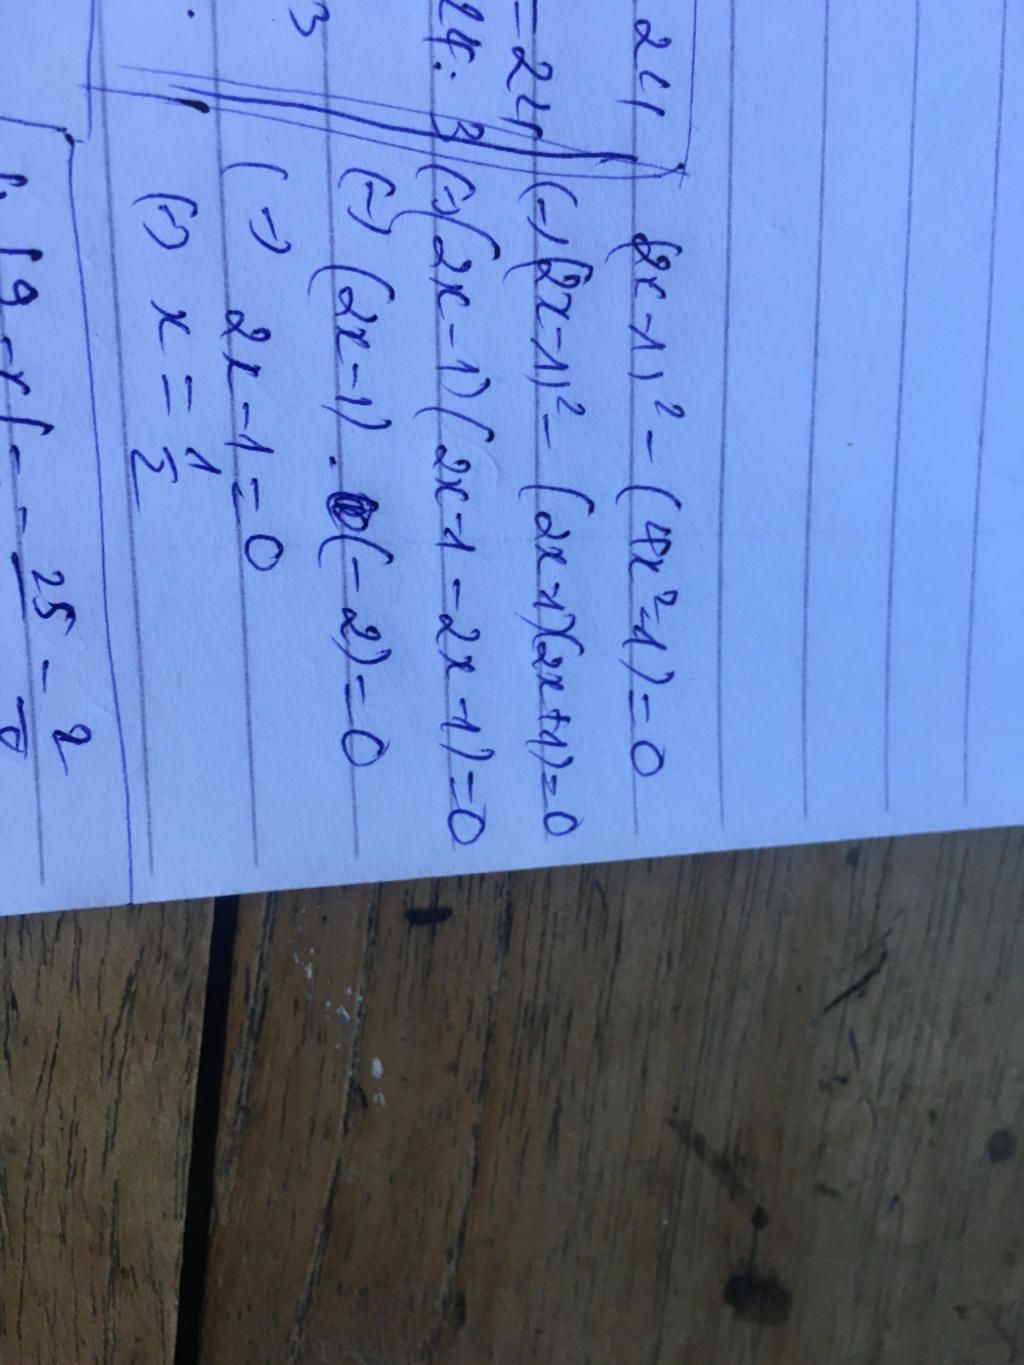 24
= 24
24 : 3
3
(2x-1)² - (4x²-1) = 0
(=) (2x-1)² - (2x-1)(2x+1) = 0
(=) (2x-1)(2x-1-2x-1) = 0
(=) (2x-1) . (-2) = 0
(=) 2x-1 = 0
(=) x = 1/2